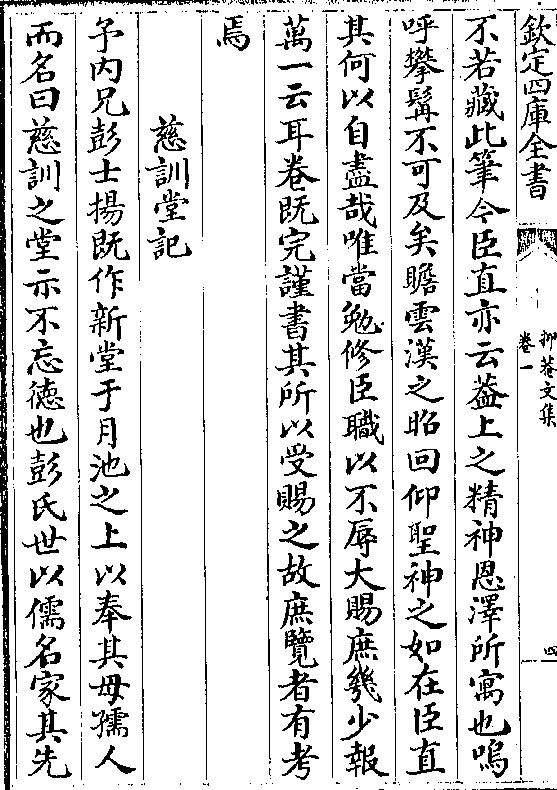 欽定四庫全書
抑菴文集
卷一
四
不若藏此筆今臣直亦云葢上之精神恩澤所寓也嗚
呼攀髯不可及矣瞻雲漢之昭回仰聖神之如在臣直
其何以自盡哉唯當勉修臣職以不辱大賜庶幾少報
萬一云耳卷既完謹書其所以受賜之故庶覽者有考
焉
慈訓堂記
予内兄彭士揚既作新堂于月池之上以奉其母孺人
而名曰慈訓之堂示不忘德也彭氏世以儒名家其先